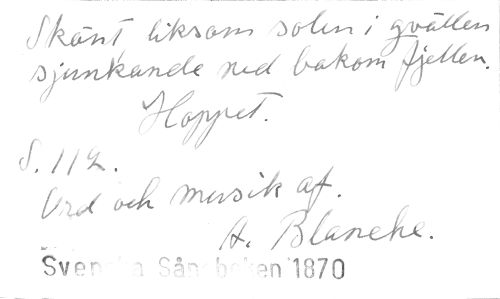 Skönt liksom solen i qvällen
sjunkande ned bakom fjellen.
Hoppet.
S. 112.
Ord och musik af.
A. Blanche.
Svenska Sångboken 1870